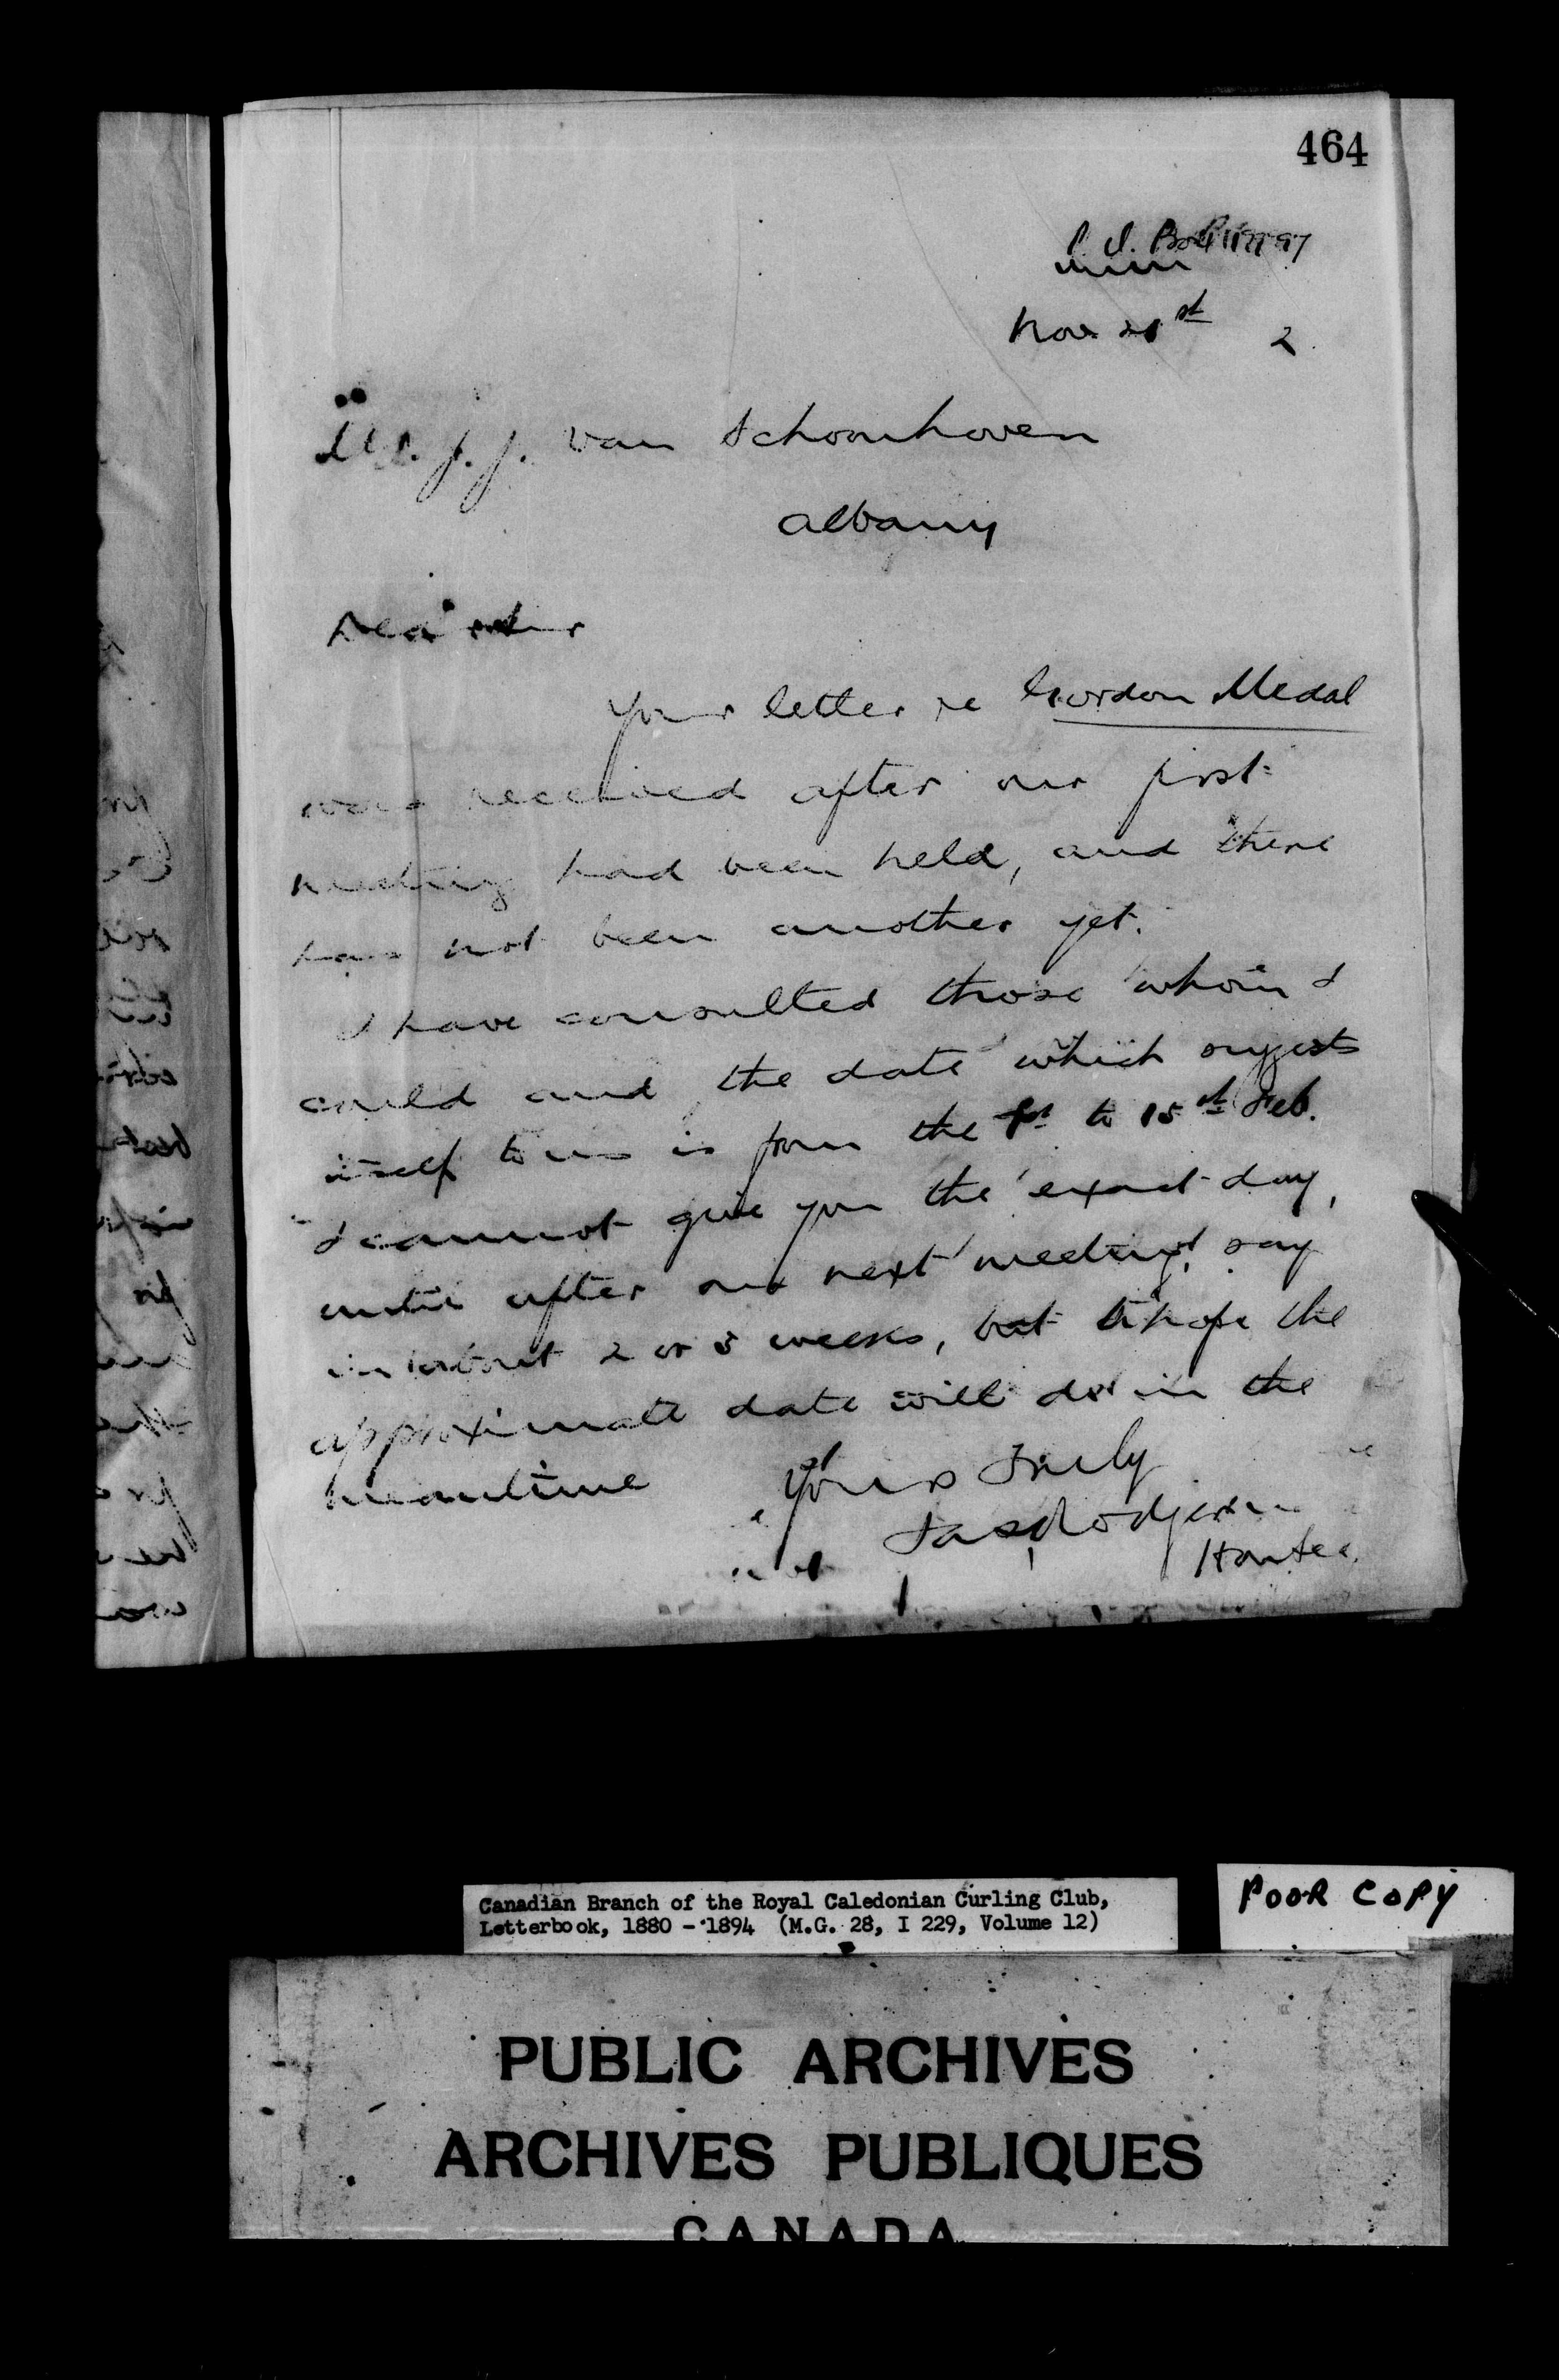 464
P.O. Box
Nov 21st 2
Mr. J. J. Van Schoonhoven
Albany
Dear Sir
Your letter re Gordon Medal
was received after our first
meeting had been held, and there
has not been another yet.
I have consulted those whom I
could and the date which suggests
itself to us is from the 1st to 15th Feb.
I cannot give you the exact day,
until after our next meeting, say
in about 2 or 3 weeks, but hope the
approximate date will do in the
meantime
Yours Truly
Jas Rodgerson
Hon Sec.
Canadian Branch of the Royal Caledonian Curling Club,
Letterbook, 1880 - 1894 (M.G. 28, I 229, Volume 12)
POOR COPY
PUBLIC ARCHIVES
ARCHIVES PUBLIQUES
CANADA